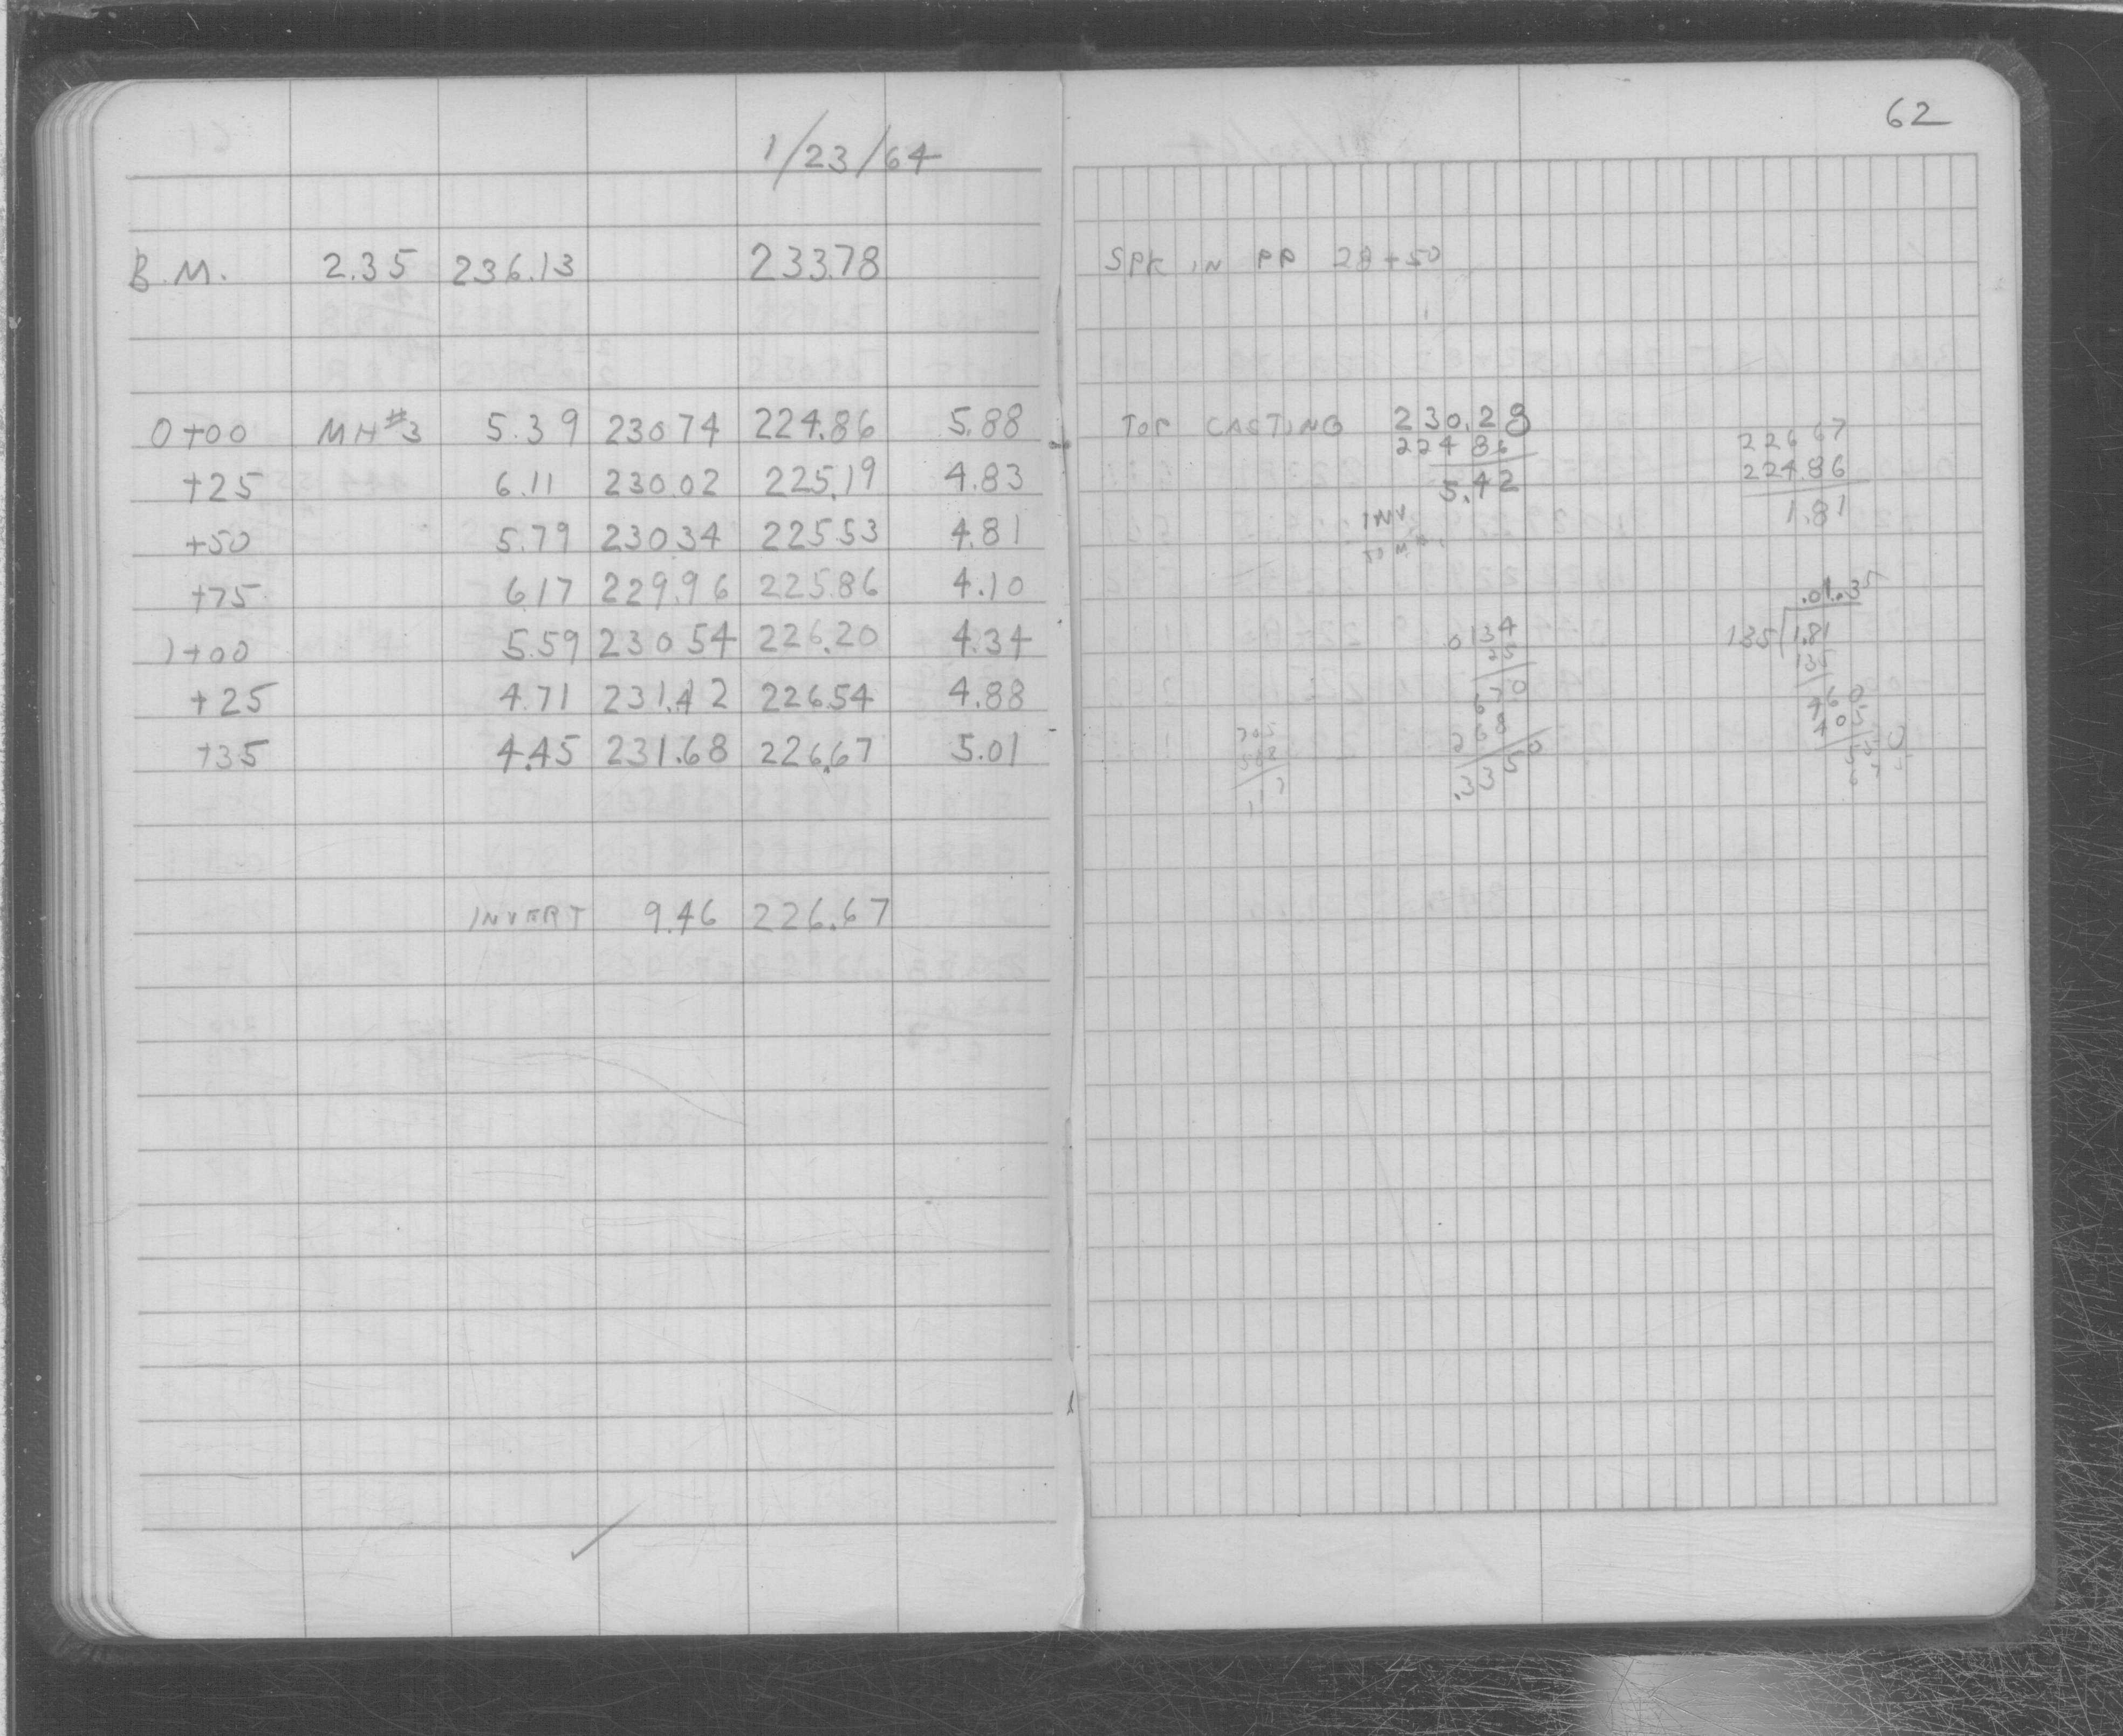 1/23/64
62
B.M. 2.35 236.13 233.78
SPK IN PP 28+50
0+00 MH#3 5.39 230 74 224.86 5.88
TOP CASTING 230.28
224 86
5.42
INV
226 67
224.86
1.81
+25 6.11 230 02 225.19 4.83
+50 5.79 230 34 225 53 4.81
+75 6 17 229.96 225.86 4.10
1+00 5.59 230 54 226.20 4.34
+25 4.71 231.42 226.54 4.88
+35 4.45 231.68 226.67 5.01
.0134
25
670
268
.3350
.01.35
135 1.81
135
460
405
550
675
INVERT 9.46 226.67